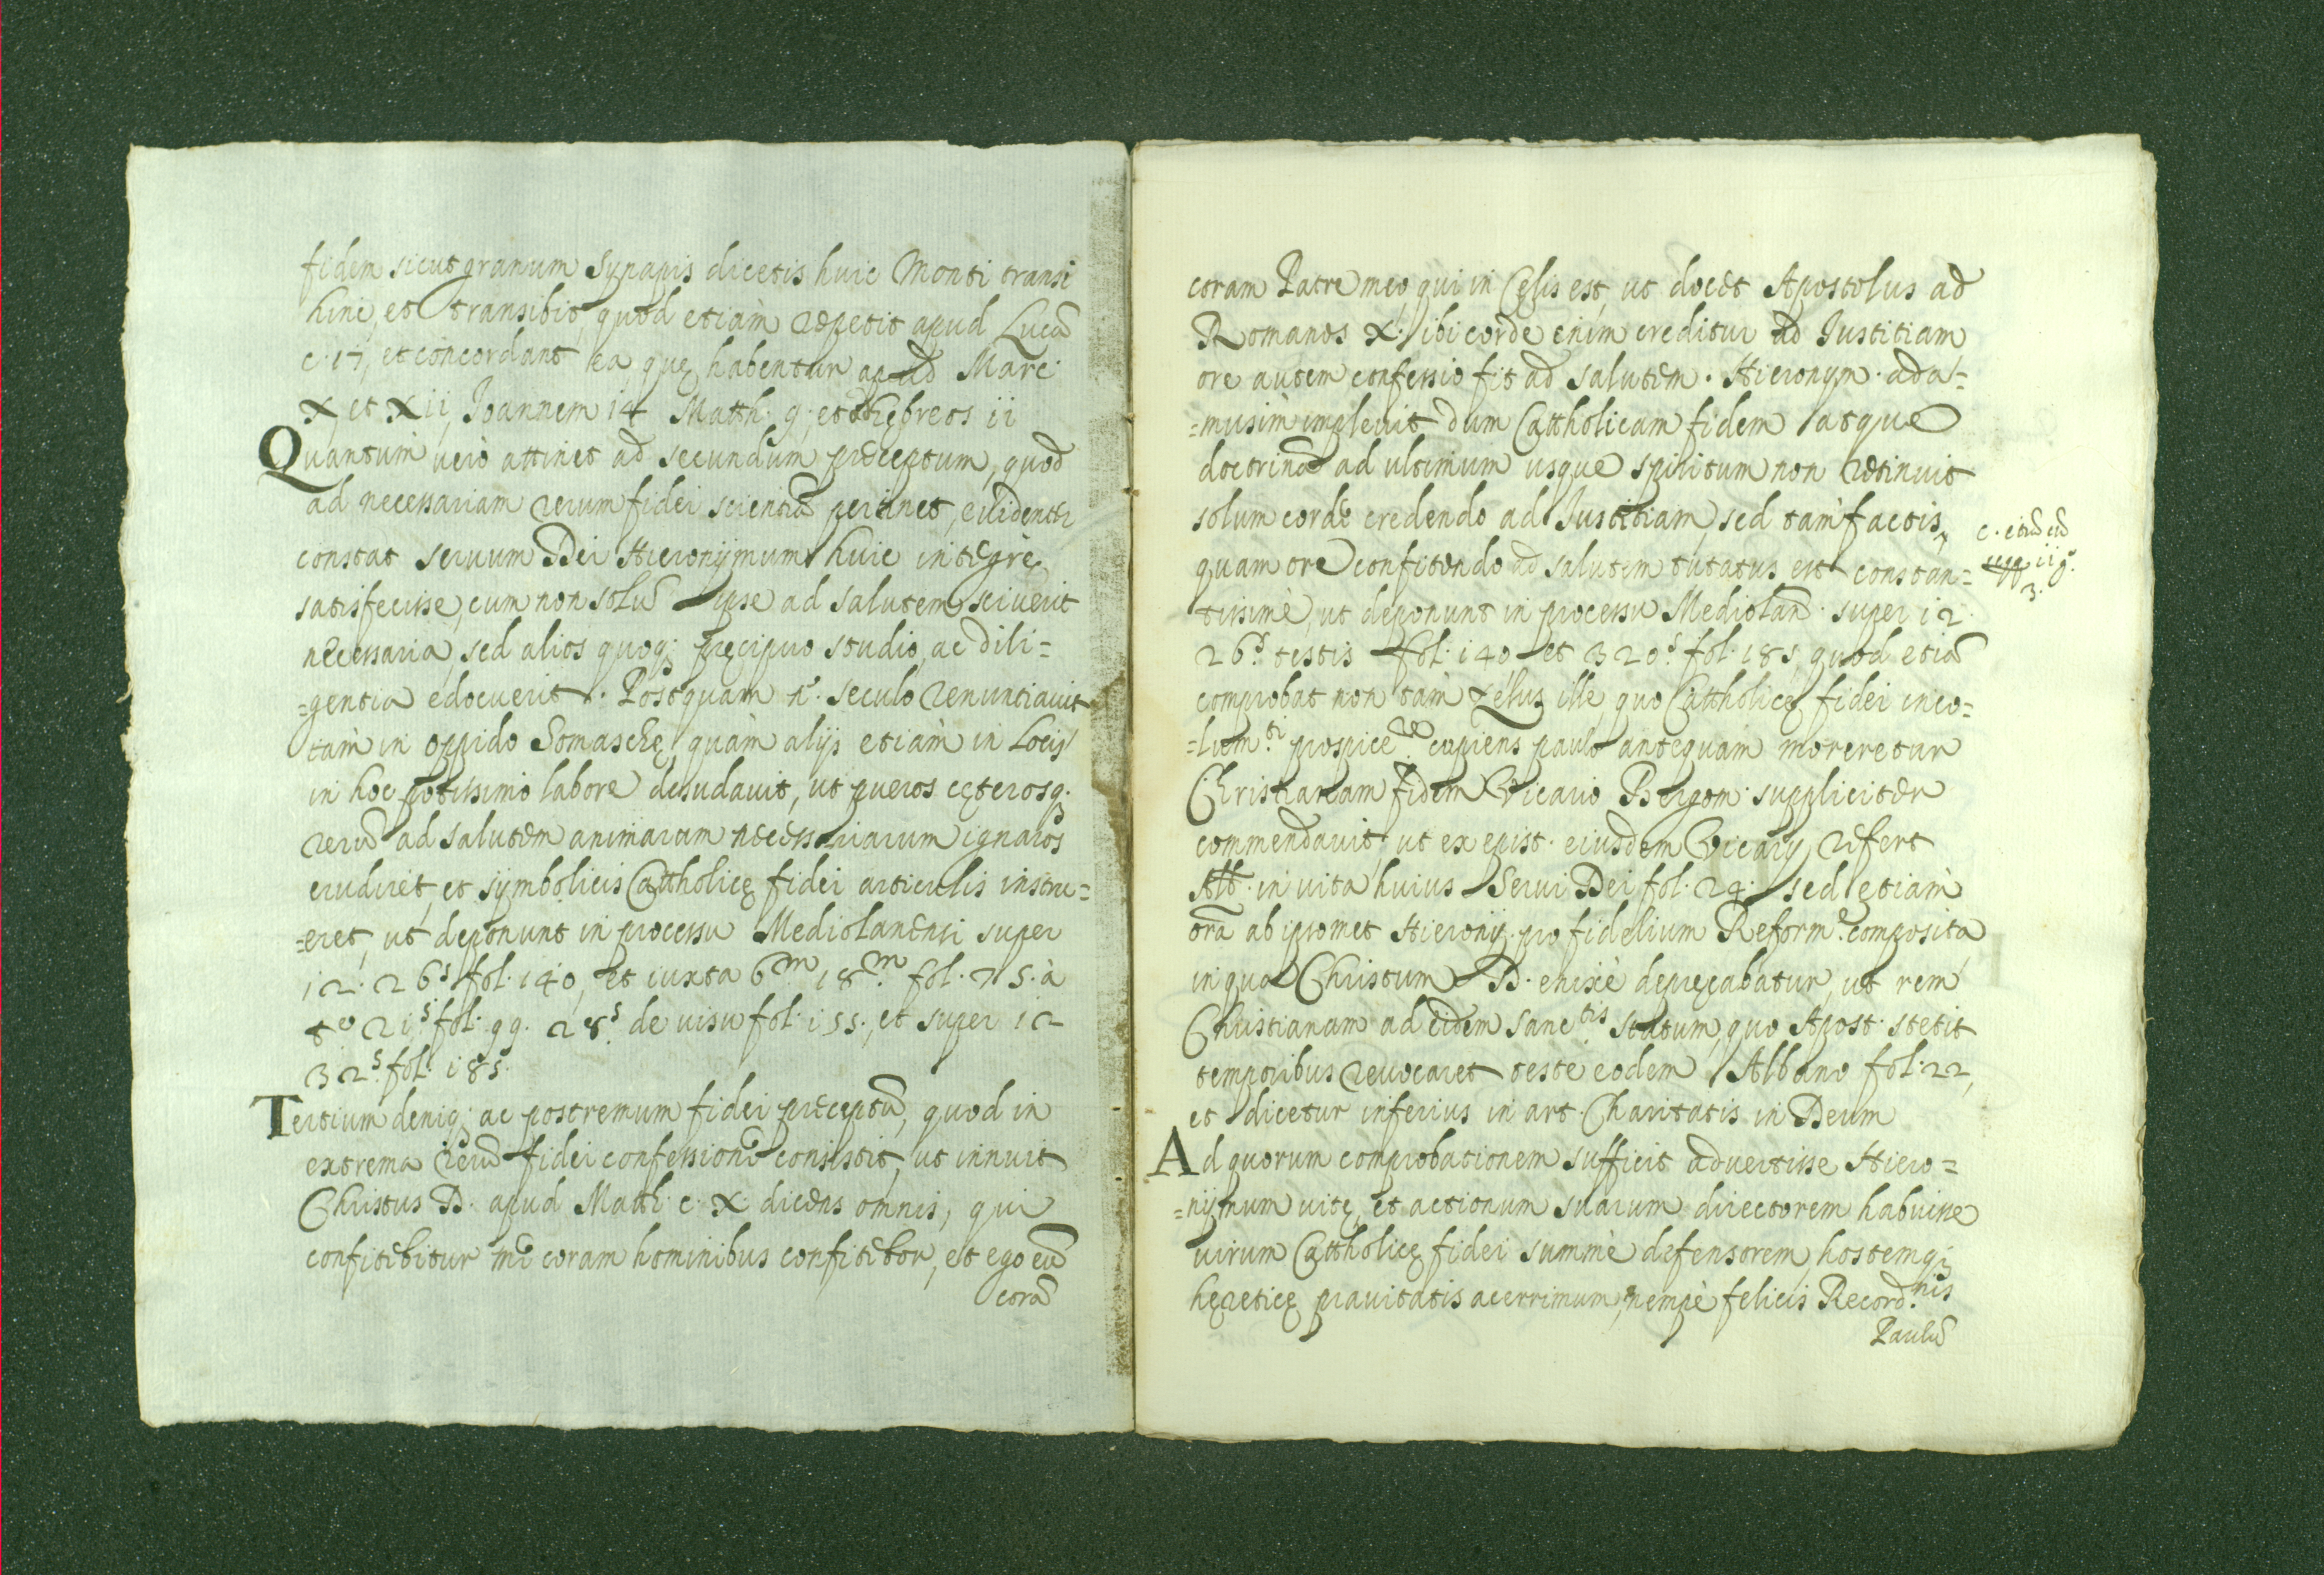 fidem sicut granum Synapis dicetis huic Monti transi
hinc, et transibit, quod etiam repetit apud Lucā
c. 17, et concordant ea quę habentur apud Marc.
X et Xii, Joannem 14 Matth. 9, et Hębreos ii
Quantum verò attinet ad secundum pręceptum, quod
ad necessariam rerum fidei scientiā pertinet, evidenter
constat seruum Dei Hieronijmum huic integrè
satisfecisse, cum non solū ipse ad salutem sciverit
necessaria, sed alios quoq; pręcipuo studio, ac dili=
=gentia edocuerit. Postquam n. seculo renuntiavit
tam in oppido Somaschę, quàm alijs etiam in Locis
in hoc potissimo labore desudavit, ut pueros cęterosq.
rerū ad salutem animarum necessariarum ignaros
erudiret, et symbolicis Cattholicę fidei articulis instru=
=eret, ut deponunt in processu Mediolanensi super
12. 26.s fol. 140, et iuxta 6.m 18.m fol. 75. à
t.o 21.s fol. 99. 28.s de visu fol. 155., et super 12
32.s fol. 185.
Tertium deniq; ac postremum fidei pręceptū, quod in
extrema rerū fidei confessione consistit, ut innuit
Christus D. apud Matth. c. X. dicens omnis, qui
confitebitur me coram hominibus confitebor, et ego eū
corā
coram Patre meo, qui in Cęlis est, ut docet Apostolus ad
Romanos X. ibi corde enim creditur ad Justitiam
ore autem confessio fit ad salutem. Hieronym. ada=
=musim implevit dum Cattholicam fidem atque
doctrinā ad ultimum usque spiritum non retinuit
solum corde credendo ad Justitiam, sed tam factis,
quam ore confitendo ad salutem tutatus est constan=
tissimè, ut deponunt in processu Mediolan. super 12
26.s testis fol. 140 et 320.s fol. 185, quod etiā
comprobat non tam zelus ille, quo Cattholicę fidei inco=
=lum.ti prospice.re cupiens paulo antequam moreretur
Christianam fidem Vicario Bergom. suppliciter
commendavit, ut ex epist. eiusdem Vicarij refert
Alb. in vita huius Servi Dei fol. 24. sed etiam
orā ab ipsomet Hieronij. pro fidelium Reform.e composita
in qua Christum D. enixè depręcabatur, ut rem
Christianam ad eidem sanc.tis statum, quo Apost. stetit
temporibus revocaret teste eodem Albano fol. 22,
et dicetur inferius in art. Charitatis in Deum
Ad quorum comprobationem sufficit advertisse Hiero=
=nijmum vitę, et actionum suarum directorem habuisse
virum Cattholicę fidei summè defensorem, hostemq;
hęreticę pravitatis acerrimum, nempè felicis Record.nis
Paulū